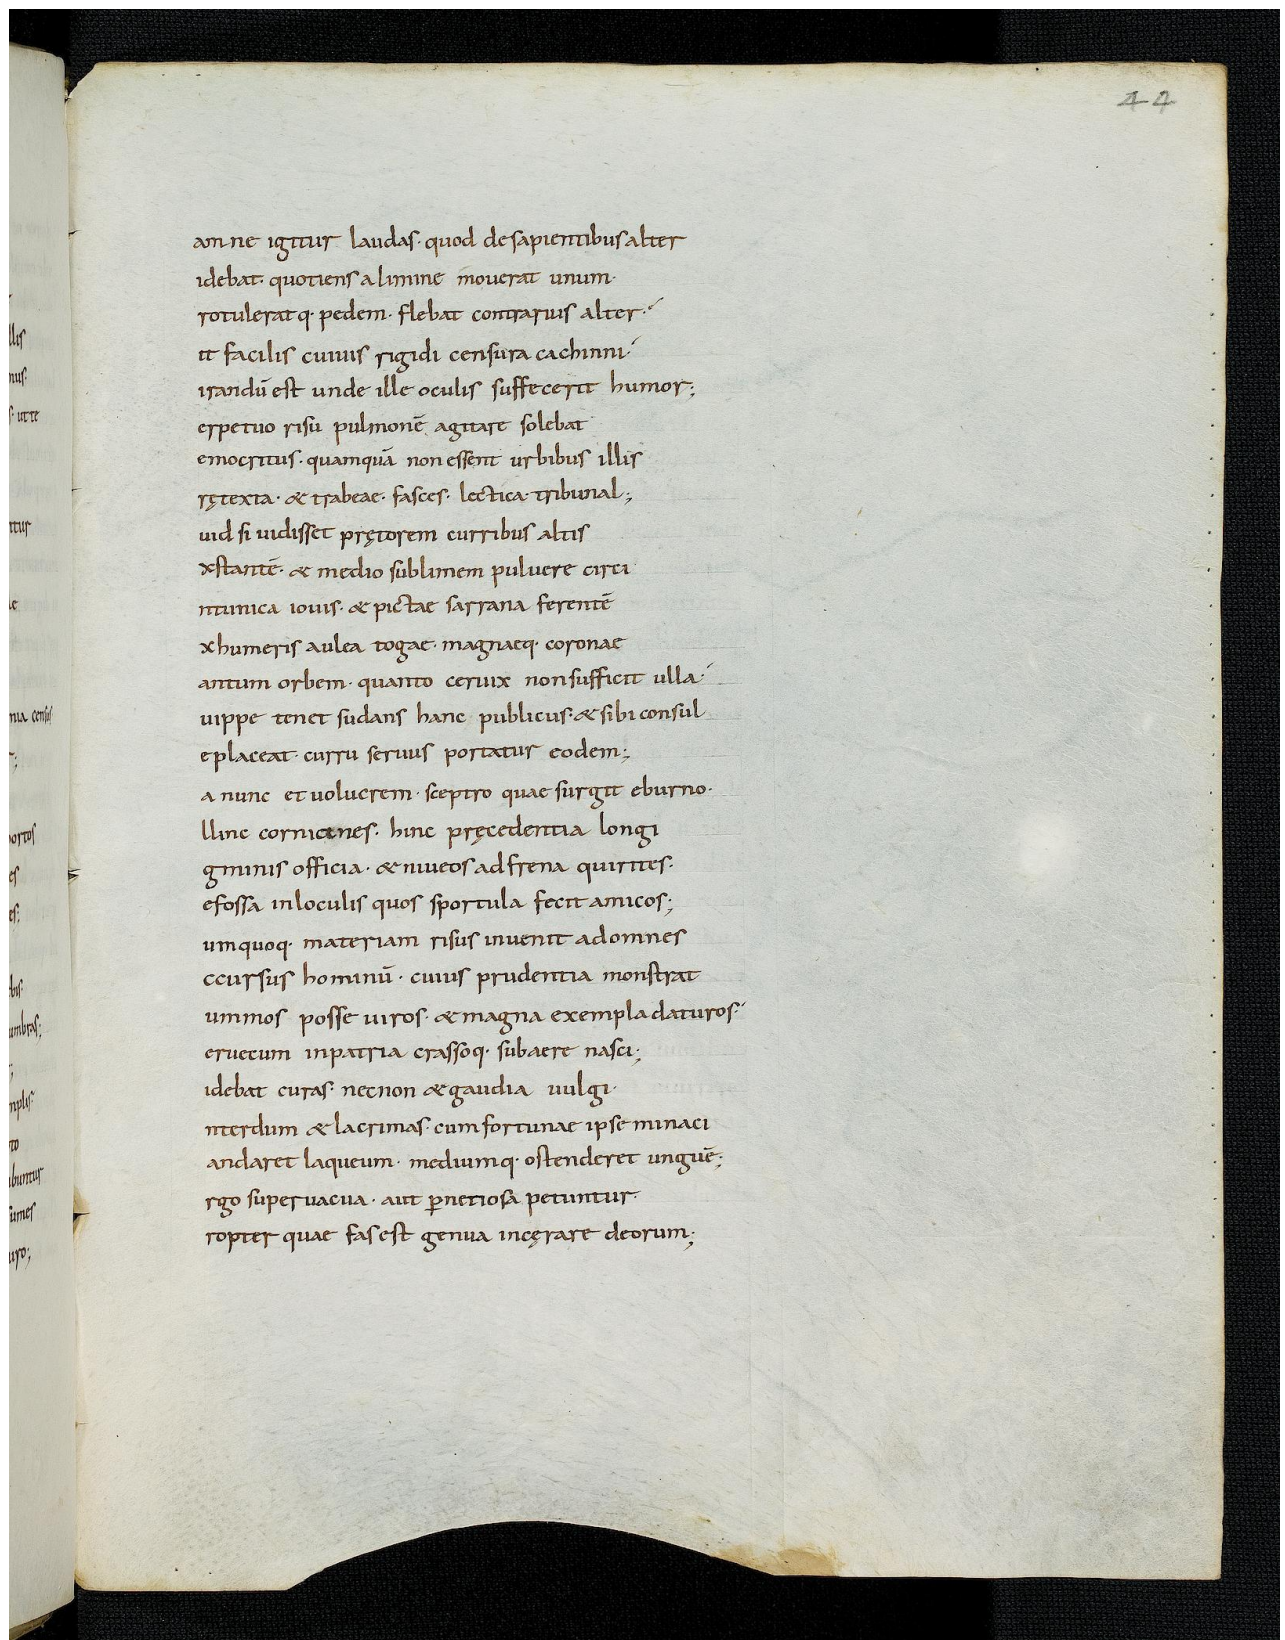 44
anne igitur laudas· quod de sapientibus alter
idebat· quotiens a limine mouerat unum·
rotuleratq· pedem· flebat contrarius alter·
it facilis cuiuis rigidi censura cachinni·
irandū est unde ille oculis suffecerit humor;
erpetuo risu pulmonē agitare solebat
emocritus· quamquā non essent urbibus illis
rętexta· & trabeae· fasces· lectica· tribunal;
uid si uidisset prętorem curribus altis
xstantē· & medio sublimem puluere circi
ntunica iouis· & pictae sarrana ferentē
x humeris aulea togae· magnaeq· coronae
antum orbem· quanto ceruix non sufficit ulla·
uippe tenet sudans hanc publicus· & sibi consul
e placeat· curru seruus portatur eodem;
a nunc et uolucrem· sceptro quae surgit eburno·
llinc cornicines· hinc pręcedentia longi
gminis officia· & niueos ad frena quirites·
efossa in loculis quos sportula fecit amicos;
umquoq· materiam risus inuenit ad omnes
ccursus hominū· cuius prudentia monstrat
ummos posse uiros· & magna exempla daturos·
eruecum in patria crassoq· sub aere nasci;
idebat curas· necnon & gaudia uulgi·
nterdum & lacrimas· cum fortunae ipse minaci
andaret laqueum· mediumq· ostenderet unguē;
rgo superuacua· aut ꝑnetiosa petuntur·
ropter quae fas est genua incęrare deorum;